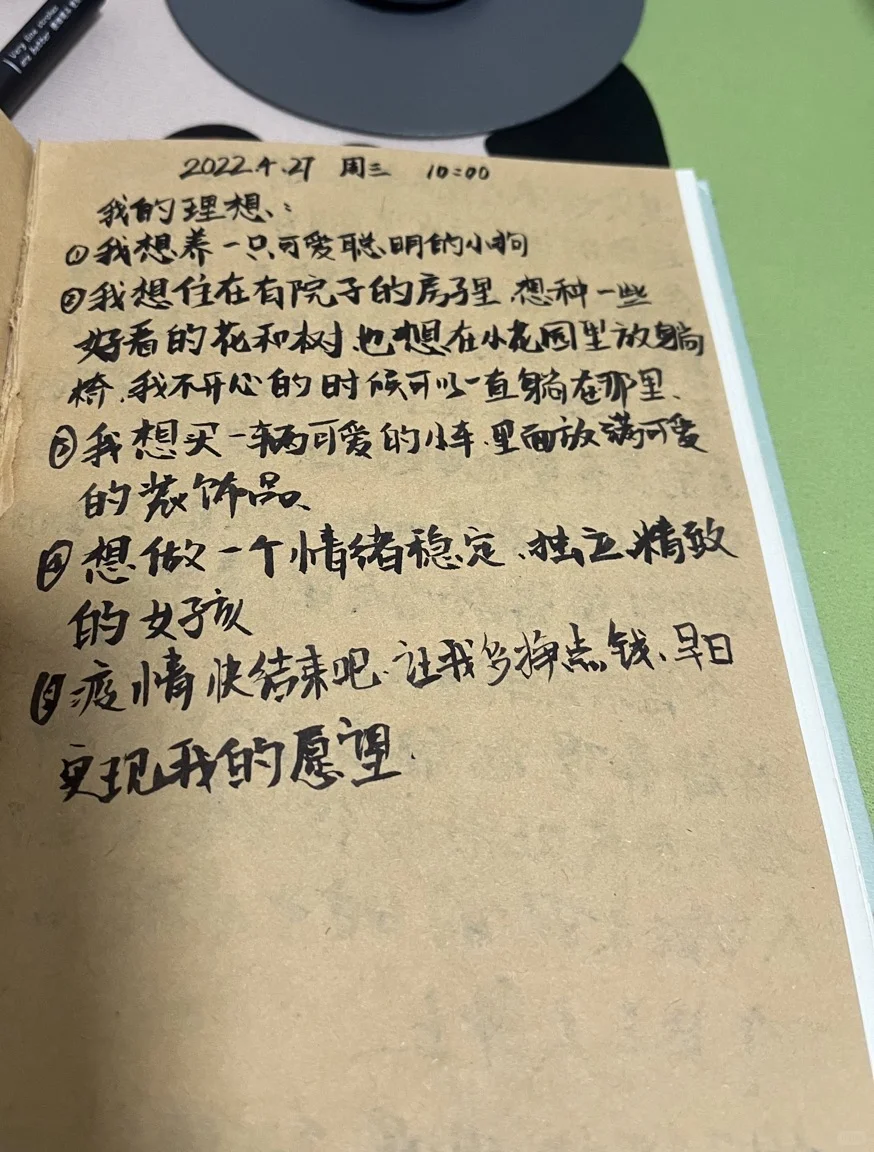 very fine strokes
are better
2022.4.27 周三 10:00
我的理想、:
①我想养一只可爱聪明的小狗
②我想住在有院子的房子里.想种一些
好看的花和树.也想在小花园里放躺
椅.我不开心的时候可以一直躺在那里、
③我想买一辆可爱的小车.里面放满可爱
的装饰品、
④想做一个情绪稳定、独立.精致
的女孩
⑤疫情快结束吧.让我多挣点钱、早日
实现我的愿望.